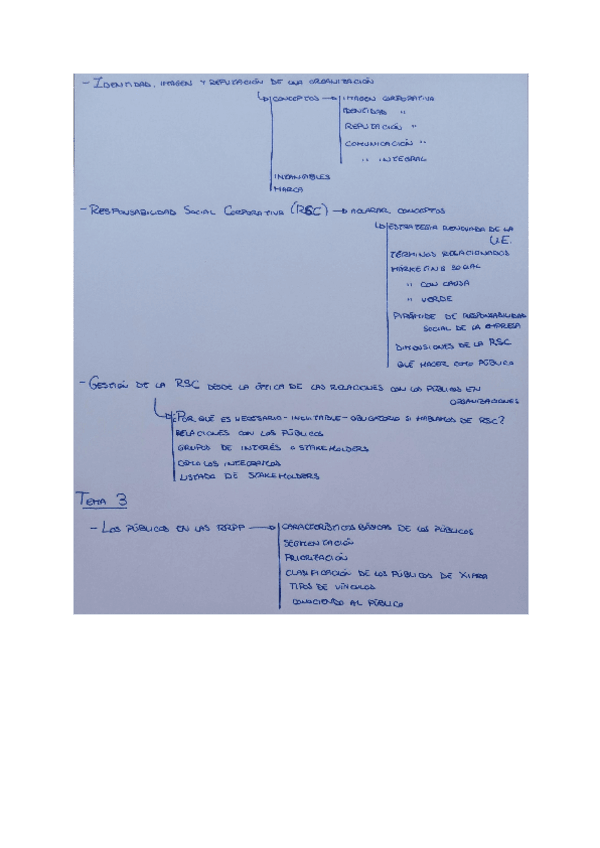 - Identidad, imagen y reputación de una organización
↳ Conceptos → Imagen corporativa
Identidad "
Reputación "
Comunicación "
" integral
Intangibles
Marca
- Responsabilidad Social Corporativa (RSC) → Aclarar conceptos
↳ Estrategia renovada de la
U.E.
Términos relacionados
Marketing social
" con causa
" verde
Pirámide de responsabilidad
social de la empresa
Dimensiones de la RSC
Qué hacer como público
- Gestión de la RSC desde la óptica de las relaciones con los públicos en
organizaciones
↳ ¿Por qué es necesario - inevitable - obligatorio si hablamos de RSC?
Relaciones con los públicos
Grupos de interés o stakeholders
Cómo los integramos
Listada de stakeholders
Tema 3
- Los públicos en las RRPP → Características básicas de los públicos
Segmentación
Priorización
Clasificación de los públicos de Xifra
Tipos de vínculos
Conociendo al público